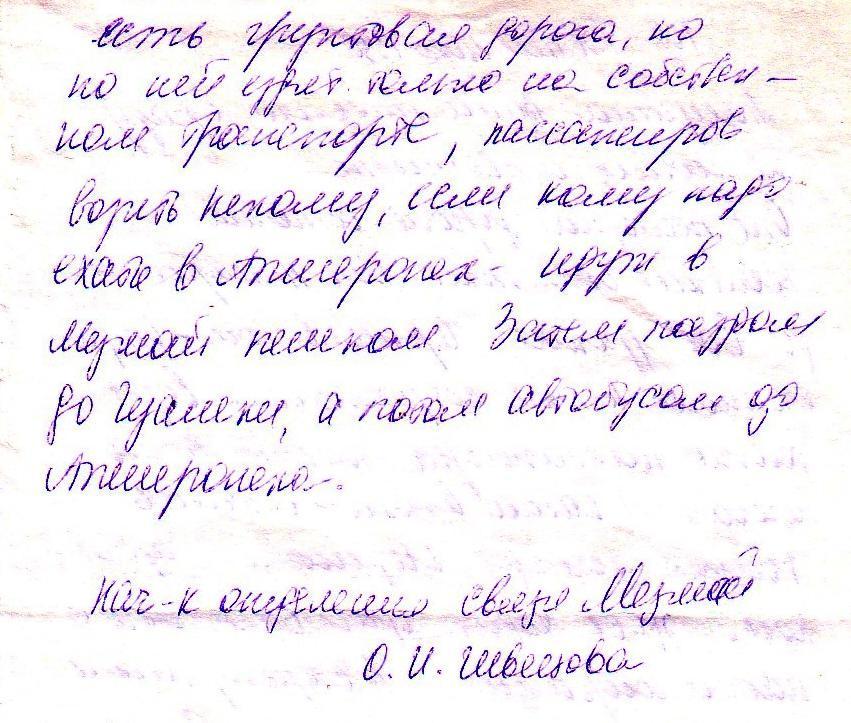 есть грунтовая дорога, но
по ней ездят только на собствен-
ном транспорте, пассажиров
возить некому, если кому надо
ехать в Апшеронск - идут в
Мезмай пешком. Затем поездом
до Гуамки, а потом автобусом до
Апшеронска.
Нач-к отделения связи Мезмай
О. И. Швецова